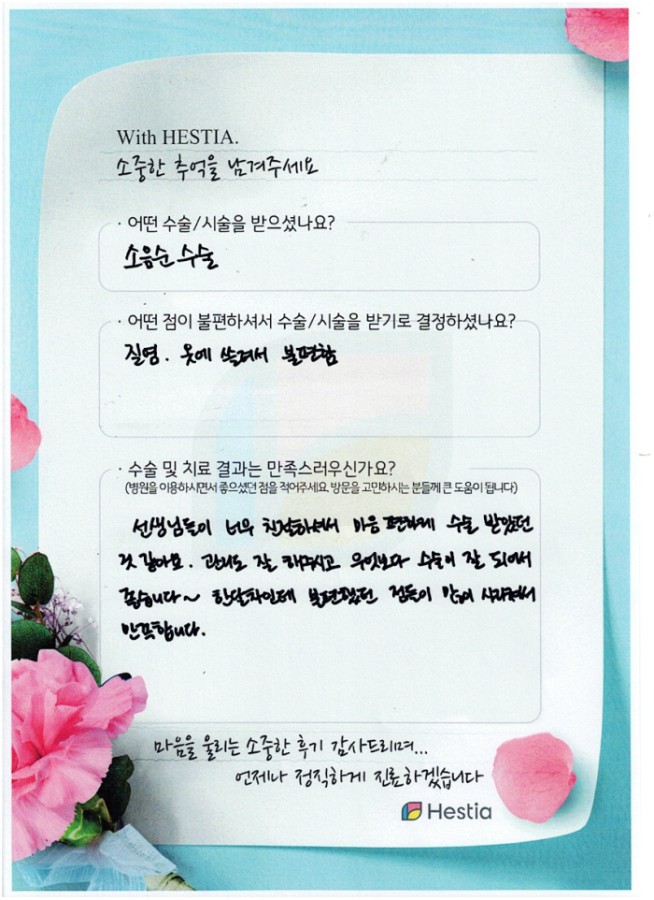 With HESTIA.
소중한 추억을 남겨주세요
· 어떤 수술/시술을 받으셨나요?
소음순 수술
· 어떤 점이 불편하셔서 수술/시술을 받기로 결정하셨나요?
질염. 옷에 쓸려서 불편함
· 수술 및 치료 결과는 만족스러우신가요?
(병원을 이용하시면서 좋으셨던 점을 적어주세요. 방문을 고민하시는 분들께 큰 도움이 됩니다)
선생님들이 너무 친절하셔서 마음 편하게 수술 받았던
것 같아요. 관리도 잘 해주시고 무엇보다 수술이 잘 되어서
좋습니다~ 한달차인데 불편했던 점들이 많이 사라져서
만족합니다.
마음을 울리는 소중한 후기 감사드리며...
언제나 정직하게 진료하겠습니다
Hestia